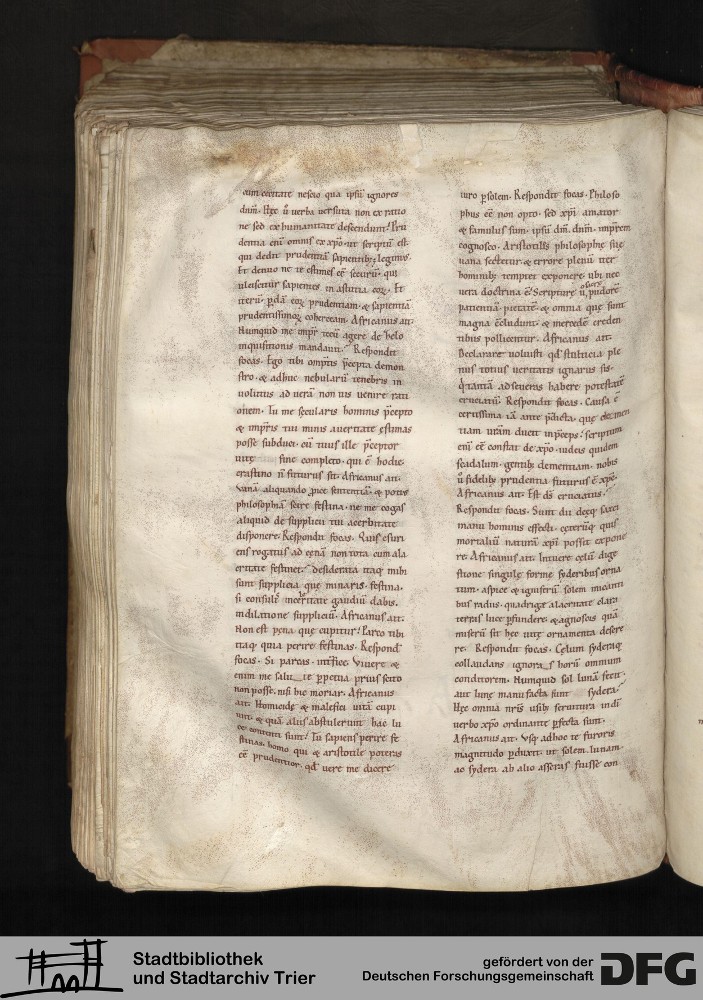 cum cecitate nescio qua ipsū ignores
dnm̄. Hęc ů verba versuta non ex ratio
ne sed ex humanitate descendunt. Pru
dentia eni᷎ omnis ex xpo. ut scriptū est.
qui dedit prudentiā sapientibȝ legimus.
Et denuo ne te estimes eē securū. qui
sapientes in astutia eoꝝ. Et
iterū. pdā eoꝝ prudentiam. & sapientiā
prudentissimoꝝ coherceam. Africanus ait.
Numquid me impr̄ tecū agere de helo
inquisitionis mandauit. Respondit
focas. Ego tibi omptis p̄cepta demon
stro. & adhuc nebularū tenebris in
uolutus ad uerā non uis uenire rati
onem. Tu me secularis hominis p̄cepto
& impr̄is tui minis auertate ęstimas
posse subduci. cū tuus ille p̄ceptor
uitę fine completo. qui ē hodie.
crastino n̄ futurus sit. Africanus ait.
Vanā aliquando ꝓice sententiā. & potius
philosophiā scire festina. ne me cogas
aliquid de supplicii tui acerbitate
disponere. Respondit focas. Quis esuri
ens rogatus ad cęnā non tota cum ala
critate festinet. Desiderata itaq mihi
sunt supplicia que minaris. festina.
si consulis gaudiū dabis.
in dilatione suppliciū. Africanus ait.
Non est pęna que cupitur. Parco tibi
itaq quia perire festinas. Respond
focas. Si parcas. int̄fice. Viuere &
enim me te ppetua prius scito
non posse. nisi hic moriar. Africanus
ait. Homicidę & malefici uitā cupi
unt. & quā aliis abstulerunt hac lu
ce contenti sunt. Tu sapiens perire fe
stinas. homo qui & aristotile poteras
eē prudentior. qd̄ uere me dicere
iuro psolem. Respondit focas. Philoso
phus eē non opto. sed xpi amator
& famulus sum. ipsū dm̄. dnm̄. impr̄em
cognosco. Aristotilis philosophię siue
uana sectetur. & errore plenū iter
hominibȝ temptet exponere. ubi nec
ucta doctrina ē. Scripturę ů sacrę pudorē
patientiā. pietatē. & omnia quę sunt
magna c̄cludunt. & mercedē creden
tibus pollicentur. Africanus ait.
Declarare uoluisti qd̄ stulticia ple
nus totius ueritatis ignarus sis.
q̄ tantā adseueras habere potestatē
cruciatū. Respondit focas. Causa ē
certissima iā ante p̄dicta. quę clemen
tiam urām ducit inp̄ceps. Scriptum
eni᷎ eē constat de xpo. iudeis quidem
scadalum. gentibȝ dementiam. nobis
ů fidelibȝ prudentia futurus ē xpc̄.
Africanus ait. Est ds̄ cruciatus.
Respondit focas. Sunt dii deęq saxei
manu hominis effecti. cęterūq quis
mortaliū naturā xpi possit expone
re. Africanus ait. Intuere cęlū dige
stione singulę formę syderibus orna
tum. aspice & ignitrū solem micanti
bus radiis. quadrigę alacritate clara
terris luce pfundere. & agnoscis quā
miserū sit hec uitę ornamenta desere
re. Respondit focas. Cęlum syderaq
collaudans ignoras horū omnium
conditorem. Numquid sol luna fecit.
aut lunę manu facta sunt sydera.
Hęc omnia nr̄is usibȝ seruitura in di
uerbo xpo ordinante pfecta sunt.
Africanus ait. Vsq adhoc te furoris
magnitudo pduxit. ut solem. lunam.
ac sydera ab alio asseras fuisse con
Stadtbibliothek
und Stadtarchiv Trier
gefördert von der
Deutschen Forschungsgemeinschaft
DFG